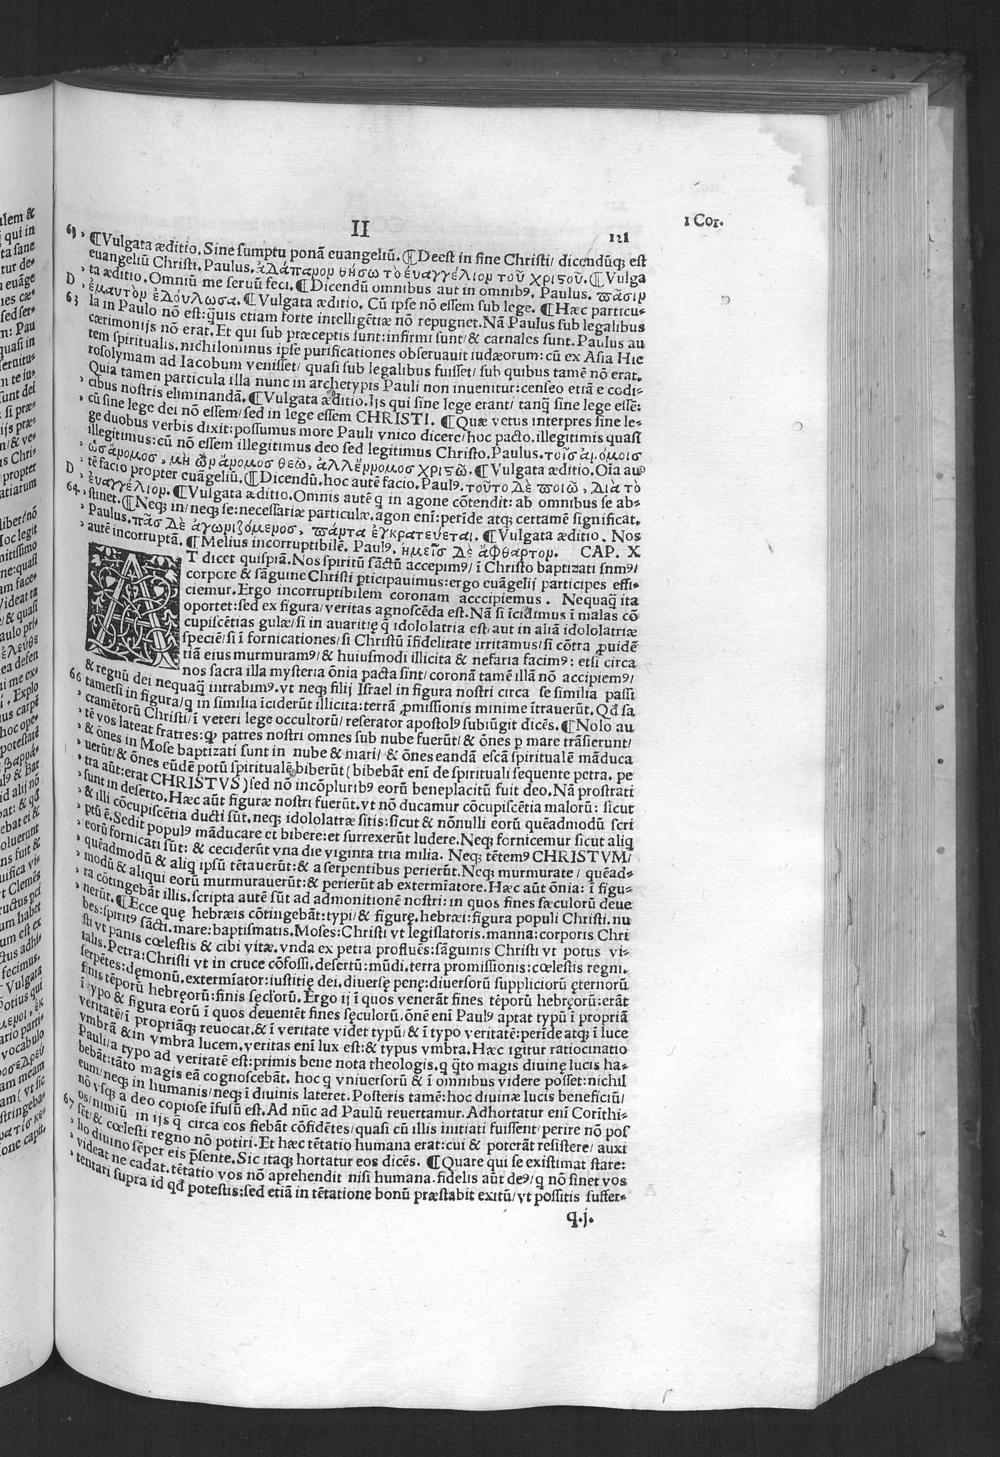 II
1 Cor.
121
61 , ¶Vulgata æditio. Sine sumptu ponã euangeliũ. ¶Deest in fine Christi/ dicendũq; est
euangeliũ Christi. Paulus. ἀδάπανον θήσω τὸ ἐυαγγέλιον τοῦ χριστοῦ. ¶Vulga
D , ta æditio. Omniũ me seruũ feci. ¶Dicendũ omnibus aut in omnibꝰ. Paulus. πᾶσιν
ἐμαυτὸν ἐδούλωσα. ¶Vulgata æditio. Cũ ipse nõ essem sub lege. ¶Hæc particu-
63 la in Paulo nõ est: quis etiam forte intelligẽtiæ nõ repugnet. Nã Paulus sub legalibus
cærimonijs nõ erat. Et qui sub præceptis sunt: infirmi sunt/ & carnales sunt. Paulus au
tem spiritualis. nichilominus ipse purificationes obseruauit iudæorum: cũ ex Asia Hie
rosolymam ad Iacobum venisset/ quasi sub legalibus fuisset/ sub quibus tamẽ nõ erat.
Quia tamen particula illa nunc in archetypis Pauli non inuenitur: censeo etiã e codi-
cibus nostris eliminandã. ¶Vulgata æditio. Ijs qui sine lege erant/ tanq̃ sine lege esse:
, cũ sine lege dei nõ essem/ sed in lege essem CHRISTI. ¶Quæ vetus interpres sine le-
ge duobus verbis dixit: possumus more Pauli vnico dicere/ hoc pacto. illegitimis quasi
illegitimus: cũ nõ essem illegitimus deo sed legitimus Christo. Paulus. τοῖσ ἀνόμοισ
ὡσ ἄνομοσ, μὴ ὢν ἄνομοσ θεῶ, ἀλλ' ἔννομοσ χριστῶ. ¶Vulgata æditio. Oĩa au
D , tẽ facio propter euãgeliũ. ¶Dicendũ. hoc autẽ facio. Paulꝰ. τοῦτο δὲ ποιῶ, διὰ τὸ
ἐυαγγέλιον. ¶Vulgata æditio. Omnis autẽ q̃ in agone cõtendit: ab omnibus se ab-
64 , stinet. ¶Neq; in/ neq; se: necessariæ particulæ. agon eni: perĩde atq; certamẽ significat.
, Paulus. πᾶσ δὲ ἀγωνιζόμενοσ, πάντα ἐγκρατεύεται. ¶Vulgata æditio. Nos
, autẽ incorruptã. ¶Melius incorruptibilẽ. Paulꝰ. ἡμεῖσ δὲ ἄφθαρτον. CAP. X
T dicet quispiã. Nos spiritũ sãctũ accepimꝰ/ ĩ Christo baptizati sumꝰ/
corpore & sãguine Christi pticipauimus: ergo euãgelij participes effi-
ciemur. Ergo incorruptibilem coronam acccipiemus. Nequaq̃ ita
oportet: sed ex figura/ veritas agnoscẽda est. Nã si ĩcidimus ĩ malas cõ
cupiscẽtias gulæ/ si in auaritiẹ q̃ idololatria est/ aut in aliã idololatriæ
speciẽ/ si ĩ fornicationes/ si Christũ ĩfidelitate irritamus/ si cõtra puidẽ
tiã eius murmuramꝰ/ & huiusmodi illicita & nefaria facimꝰ: etsi circa
nos sacra illa mysteria õnia pacta sint/ coronã tamẽ illã nõ accipiemꝰ/
& regnũ dei nequaq̃ intrabimꝰ. vt neq; filij Israel in figura nostri circa se similia passi
66 tametsi in figura/ q in similia ĩciderũt illicita: terrã pmissionis minime ĩtrauerũt. Qd sa
cramẽtorũ Christi/ ĩ veteri lege occultorũ/ reserator apostolꝰ subiũgit dicẽs. ¶Nolo au
, tẽ vos lateat fratres: qꝫ patres nostri omnes sub nube fuerũt/ & õnes p mare trãsierunt/
, & õnes in Mose baptizati sunt in nube & mari/ & õnes eandã escã spiritualẽ mãduca
, uerũt/ & õnes eũdẽ potũ spiritualẽ biberũt (bibebãt eni de spirituali sequente petra. pe
, tra aũt: erat CHRISTVS) sed nõ incõpluribꝰ eorũ beneplacitũ fuit deo. Nã prostrati
, sunt in deserto. Hæc aũt figuræ nostri fuerũt. vt nõ ducamur cõcupiscẽtia malorũ: sicut
, & illi cõcupiscẽtia ducti sũt. neq; idololatræ sitis: sicut & nõnulli eorũ quẽadmodũ scri
, ptũ ẽ. Sedit populꝰ mãducare et bibere: et surrexerũt ludere. Neq; fornicemur sicut aliq
, eorũ fornicati sũt: & ceciderũt vna die viginta tria milia. Neq; tẽtemꝰ CHRISTVM/
, quẽadmodũ & aliq ipsũ tẽtauerũt: & a serpentibus perierũt. Neq; murmurate/ quẽad-
, modũ & aliqui eorũ murmurauerũt: & perierũt ab extermĩatore. Hæc aũt õnia: ĩ figu-
, ra cõtingebãt illis. scripta autẽ sũt ad admonitionẽ nostri: in quos fines sæculorũ deue
, nerũt. ¶Ecce quẹ hebræis cõtingebãt: typi/ & figurẹ. hebræi: figura populi Christi. nu
bes: spiritꝰ sãcti. mare: baptismatis. Moses: Christi vt legislatoris. manna: corporis Chri
sti vt panis cœlestis & cibi vitæ. vnda ex petra profluẽs: sãguinis Christi vt potus vi-
talis. Petra: Christi vt in cruce cõfossi. desertũ: mũdi. terra promissionis: cœlestis regni.
serpẽtes: dẹmonũ. extermĩator: iustitiẹ dei. diuersẹ penẹ: diuersorũ suppliciorũ ẹternorũ.
finis tẽporũ hebrẹorũ: finis sẹclorũ. Ergo ij ĩ quos venerãt fines tẽporũ hebrẹorũ: erãt
ĩ typo & figura eorũ ĩ quos deueniẽt fines sẹculorũ. õnẽ eni Paulꝰ aptat typũ ĩ propriã
veritatẽ/ ĩ propriãq; reuocat. & ĩ veritate videt typũ/ & ĩ typo veritatẽ: perĩde atq; ĩ luce
vmbrã & in vmbra lucem. veritas eni lux est: & typus vmbra. Hæc igitur ratiocinatio
Pauli/ a typo ad veritatẽ est: primis bene nota theologis. q q̃to magis diuinẹ lucis ha-
bebãt: tãto magis eã cognoscebãt. hoc q̃ vniuersorũ & ĩ omnibus videre posset: nichil
eum/ neq; in humanis/ neq; ĩ diuinis lateret. Posteris tamẽ: hoc diuinæ lucis beneficiũ/
nõ vsq; a deo copiose ĩfusũ est. Ad nũc ad Paulũ reuertamur. Adhortatur eni Corĩthi-
67 os/ nimiũ in ijs q̃ circa eos fiebãt cõfidẽtes/ quasi cũ illis initiati fuissent/ perire nõ pos
sẽt/ & cœlesti regno nõ potiri. Et hæc tẽtatio humana erat: cui & poterãt resistere/ auxi
lio diuino sẽper eis p̃sente. Sic itaq; hortatur eos dicẽs. ¶Quare qui se existimat stare:
, videat ne cadat. tẽtatio vos nõ aprehendit nisi humana. fidelis aũt deꝰ/ q nõ sinet vos
, tentari supra id qd potestis: sed etiã in tẽtatione bonũ præstabit exitũ/ vt possitis suffer-
q.j.